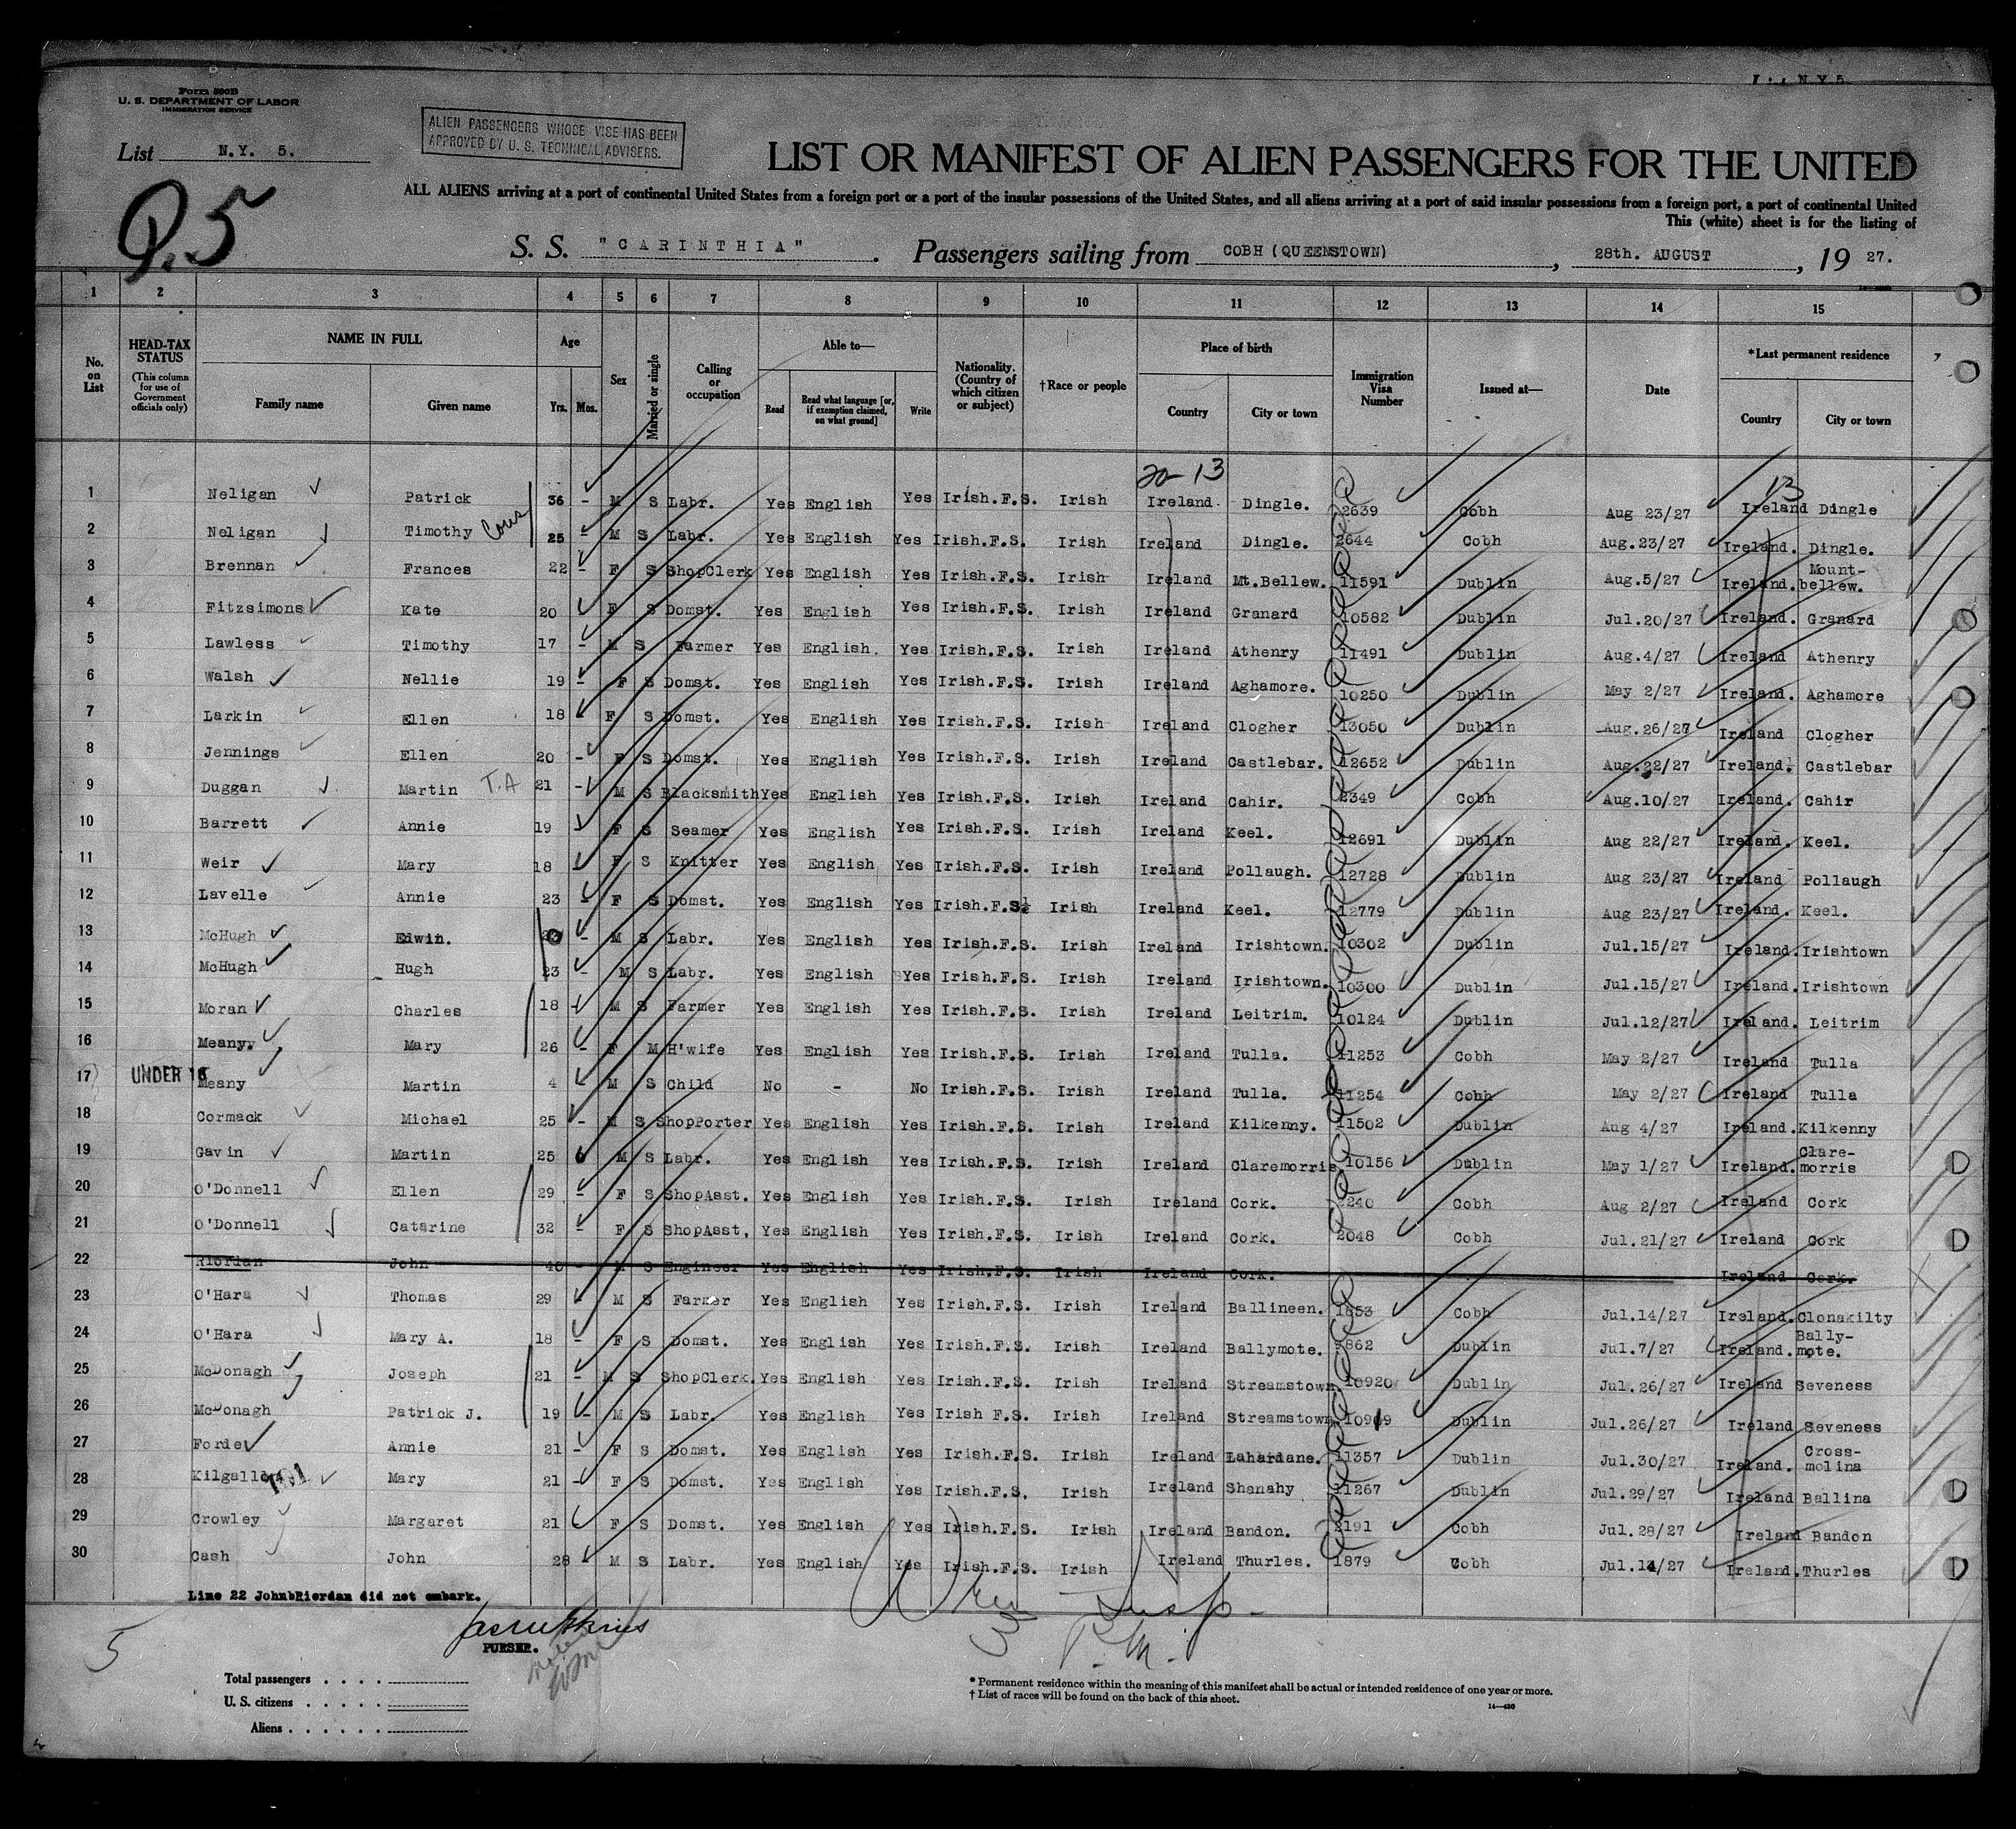 L N.Y. 5
Form 500B
U. S. DEPARTMENT OF LABOR
IMMIGRATION SERVICE
ALIEN PASSENGERS WHOSE VISE HAS BEEN
APPROVED BY U. S. TECHNICAL ADVISERS.
List N.Y. 5.
LIST OR MANIFEST OF ALIEN PASSENGERS FOR THE UNITED
ALL ALIENS arriving at a port of continental United States from a foreign port or a port of the insular possessions of the United States, and all aliens arriving at a port of said insular possessions from a foreign port, a port of continental United
This (white) sheet is for the listing of
S. S. "CARINTHIA". Passengers sailing from COBH (QUEENSTOWN), 28th. AUGUST, 19 27.
1 2 3 4 5 6 7 8 9 10 11 12 13 14 15
No. on List
HEAD-TAX STATUS
(This column for use of Government officials only)
NAME IN FULL
Family name Given name
Age
Yrs. Mos.
Sex
Married or single
Calling or occupation
Able to—
Read Read what language [or, if exemption claimed, on what ground] Write
Nationality. (Country of which citizen or subject)
†Race or people
Place of birth
Country City or town
Immigration Visa Number
Issued at—
Date
*Last permanent residence
Country City or town
20-13 13
1 Neligan Patrick 36 - M S Labr. Yes English Yes Irish.F.S. Irish Ireland Dingle. 2639 Cobh Aug 23/27 Ireland Dingle
2 Neligan Timothy Cous 25 - M S Labr. Yes English Yes Irish.F.S. Irish Ireland Dingle. 2644 Cobh Aug.23/27 Ireland. Dingle.
3 Brennan Frances 22 - F S ShopClerk Yes English Yes Irish.F.S. Irish Ireland Mt.Bellew. 11591 Dublin Aug.5/27 Ireland. Mount-bellew.
4 Fitzsimons Kate 20 F S Domst. Yes English Yes Irish.F.S. Irish Ireland Granard 10582 Dublin Jul.20/27 Ireland. Granard
5 Lawless Timothy 17 - M S Farmer Yes English. Yes Irish.F.S. Irish Ireland Athenry 11491 Dublin Aug.4/27 Ireland Athenry
6 Walsh Nellie 19 - F S Domst. Yes English Yes Irish.F.S. Irish Ireland Aghamore. 10250 Dublin May 2/27 Ireland. Aghamore
7 Larkin Ellen 18 F S Domst. Yes English Yes Irish.F.S. Irish Ireland Clogher 13050 Dublin Aug.26/27 Ireland Clogher
8 Jennings Ellen 20 - F S Domst. Yes English Yes Irish.F.S. Irish Ireland Castlebar. 12652 Dublin Aug.22/27 Ireland. Castlebar
9 Duggan Martin T.A 21 - M S Blacksmith Yes English Yes Irish.F.S. Irish Ireland Cahir. 2349 Cobh Aug.10/27 Ireland. Cahir
10 Barrett Annie 19 F S Seamer Yes English Yes Irish.F.S. Irish Ireland Keel. 12691 Dublin Aug 22/27 Ireland. Keel.
11 Weir Mary 18 F S Knitter Yes English Yes Irish.F.S. Irish Ireland Pollaugh. 12728 Dublin Aug 23/27 Ireland Pollaugh
12 Lavelle Annie 23 F S Domst. Yes English Yes Irish.F.S. Irish Ireland Keel. 12779 Dublin Aug 23/27 Ireland. Keel.
13 McHugh Edwin. - M S Labr. Yes English Yes Irish.F.S. Irish Ireland Irishtown. 10302 Dublin Jul.15/27 Ireland. Irishtown
14 McHugh Hugh 23 - M S Labr. Yes English Yes Irish.F.S. Irish Ireland Irishtown. 10300 Dublin Jul.15/27 Ireland. Irishtown
15 Moran Charles 18 - M S Farmer Yes English Yes Irish.F.S. Irish Ireland Leitrim. 10124 Dublin Jul.12/27 Ireland. Leitrim
16 Meany. Mary 26 - F M H'wife Yes English Yes Irish.F.S. Irish Ireland Tulla. 11253 Cobh May 2/27 Ireland Tulla
17 UNDER 16 Meany Martin 4 M S Child No - No Irish.F.S. Irish Ireland Tulla. 11254 Cobh May 2/27 Ireland Tulla
18 Cormack Michael 25 - M S ShopPorter Yes English Yes Irish.F.S. Irish Ireland Kilkenny. 11502 Dublin Aug 4/27 Ireland. Kilkenny
19 Gavin Martin 25 M S Labr. Yes English Yes Irish.F.S. Irish Ireland Claremorris 10156 Dublin May 1/27 Ireland. Clare-morris
20 O'Donnell Ellen 29 - F S ShopAsst. Yes English Yes Irish.F.S. Irish Ireland Cork. 240 Cobh Aug 2/27 Ireland Cork
21 O'Donnell Catarine 32 - F S ShopAsst, Yes English Yes Irish.F.S. Irish Ireland Cork. 2048 Cobh Jul.21/27 Ireland Cork
22 Riordan John 40 - M S Engineer Yes English Yes Irish.F.S. Irish Ireland Cork. Ireland Cork.
23 O'Hara Thomas 29 M S Farmer Yes English Yes Irish.F.S. Irish Ireland Ballineen. 1853 Cobh Jul.14/27 Ireland. Clonakilty
24 O'Hara Mary A. 18 - F S Domst. Yes English Yes Irish.F.S. Irish Ireland Ballymote. 9862 Dublin Jul.7/27 Ireland. Bally-mote.
25 McDonagh Joseph 21 - M S ShopClerk. Yes English Yes Irish.F.S. Irish Ireland Streamstown 10920 Dublin Jul.26/27 Ireland Seveness
26 McDonagh Patrick J. 19 - M S Labr. Yes English Yes Irish F.S. Irish Ireland Streamstown. 10919 Dublin Jul.26/27 Ireland Seveness
27 Forde Annie 21 - F S Domst. Yes English Yes Irish.F.S. Irish Ireland Lahardane. 11357 Dublin Jul.30/27 Ireland. Cross-molina
28 Kilgallon Mary 21 - F S Domst. Yes English Yes Irish.F.S. Irish Ireland Shanahy 11267 Dublin Jul.29/27 Ireland Ballina
29 Crowley Margaret 21 F S Domst. Yes English Yes Irish.F.S. Irish Ireland Bandon. 2191 Cobh Jul.28/27 Ireland Bandon
30 Cash John 28 M S Labr. Yes English Yes Irish.F.S. Irish Ireland Thurles. 1879 Cobh Jul.14/27 Ireland. Thurles
Line 22 John Riordan did not embark.
PURSER.
5
Total passengers
U. S. citizens
Aliens
* Permanent residence within the meaning of this manifest shall be actual or intended residence of one year or more.
† List of races will be found on the back of this sheet.
14—430